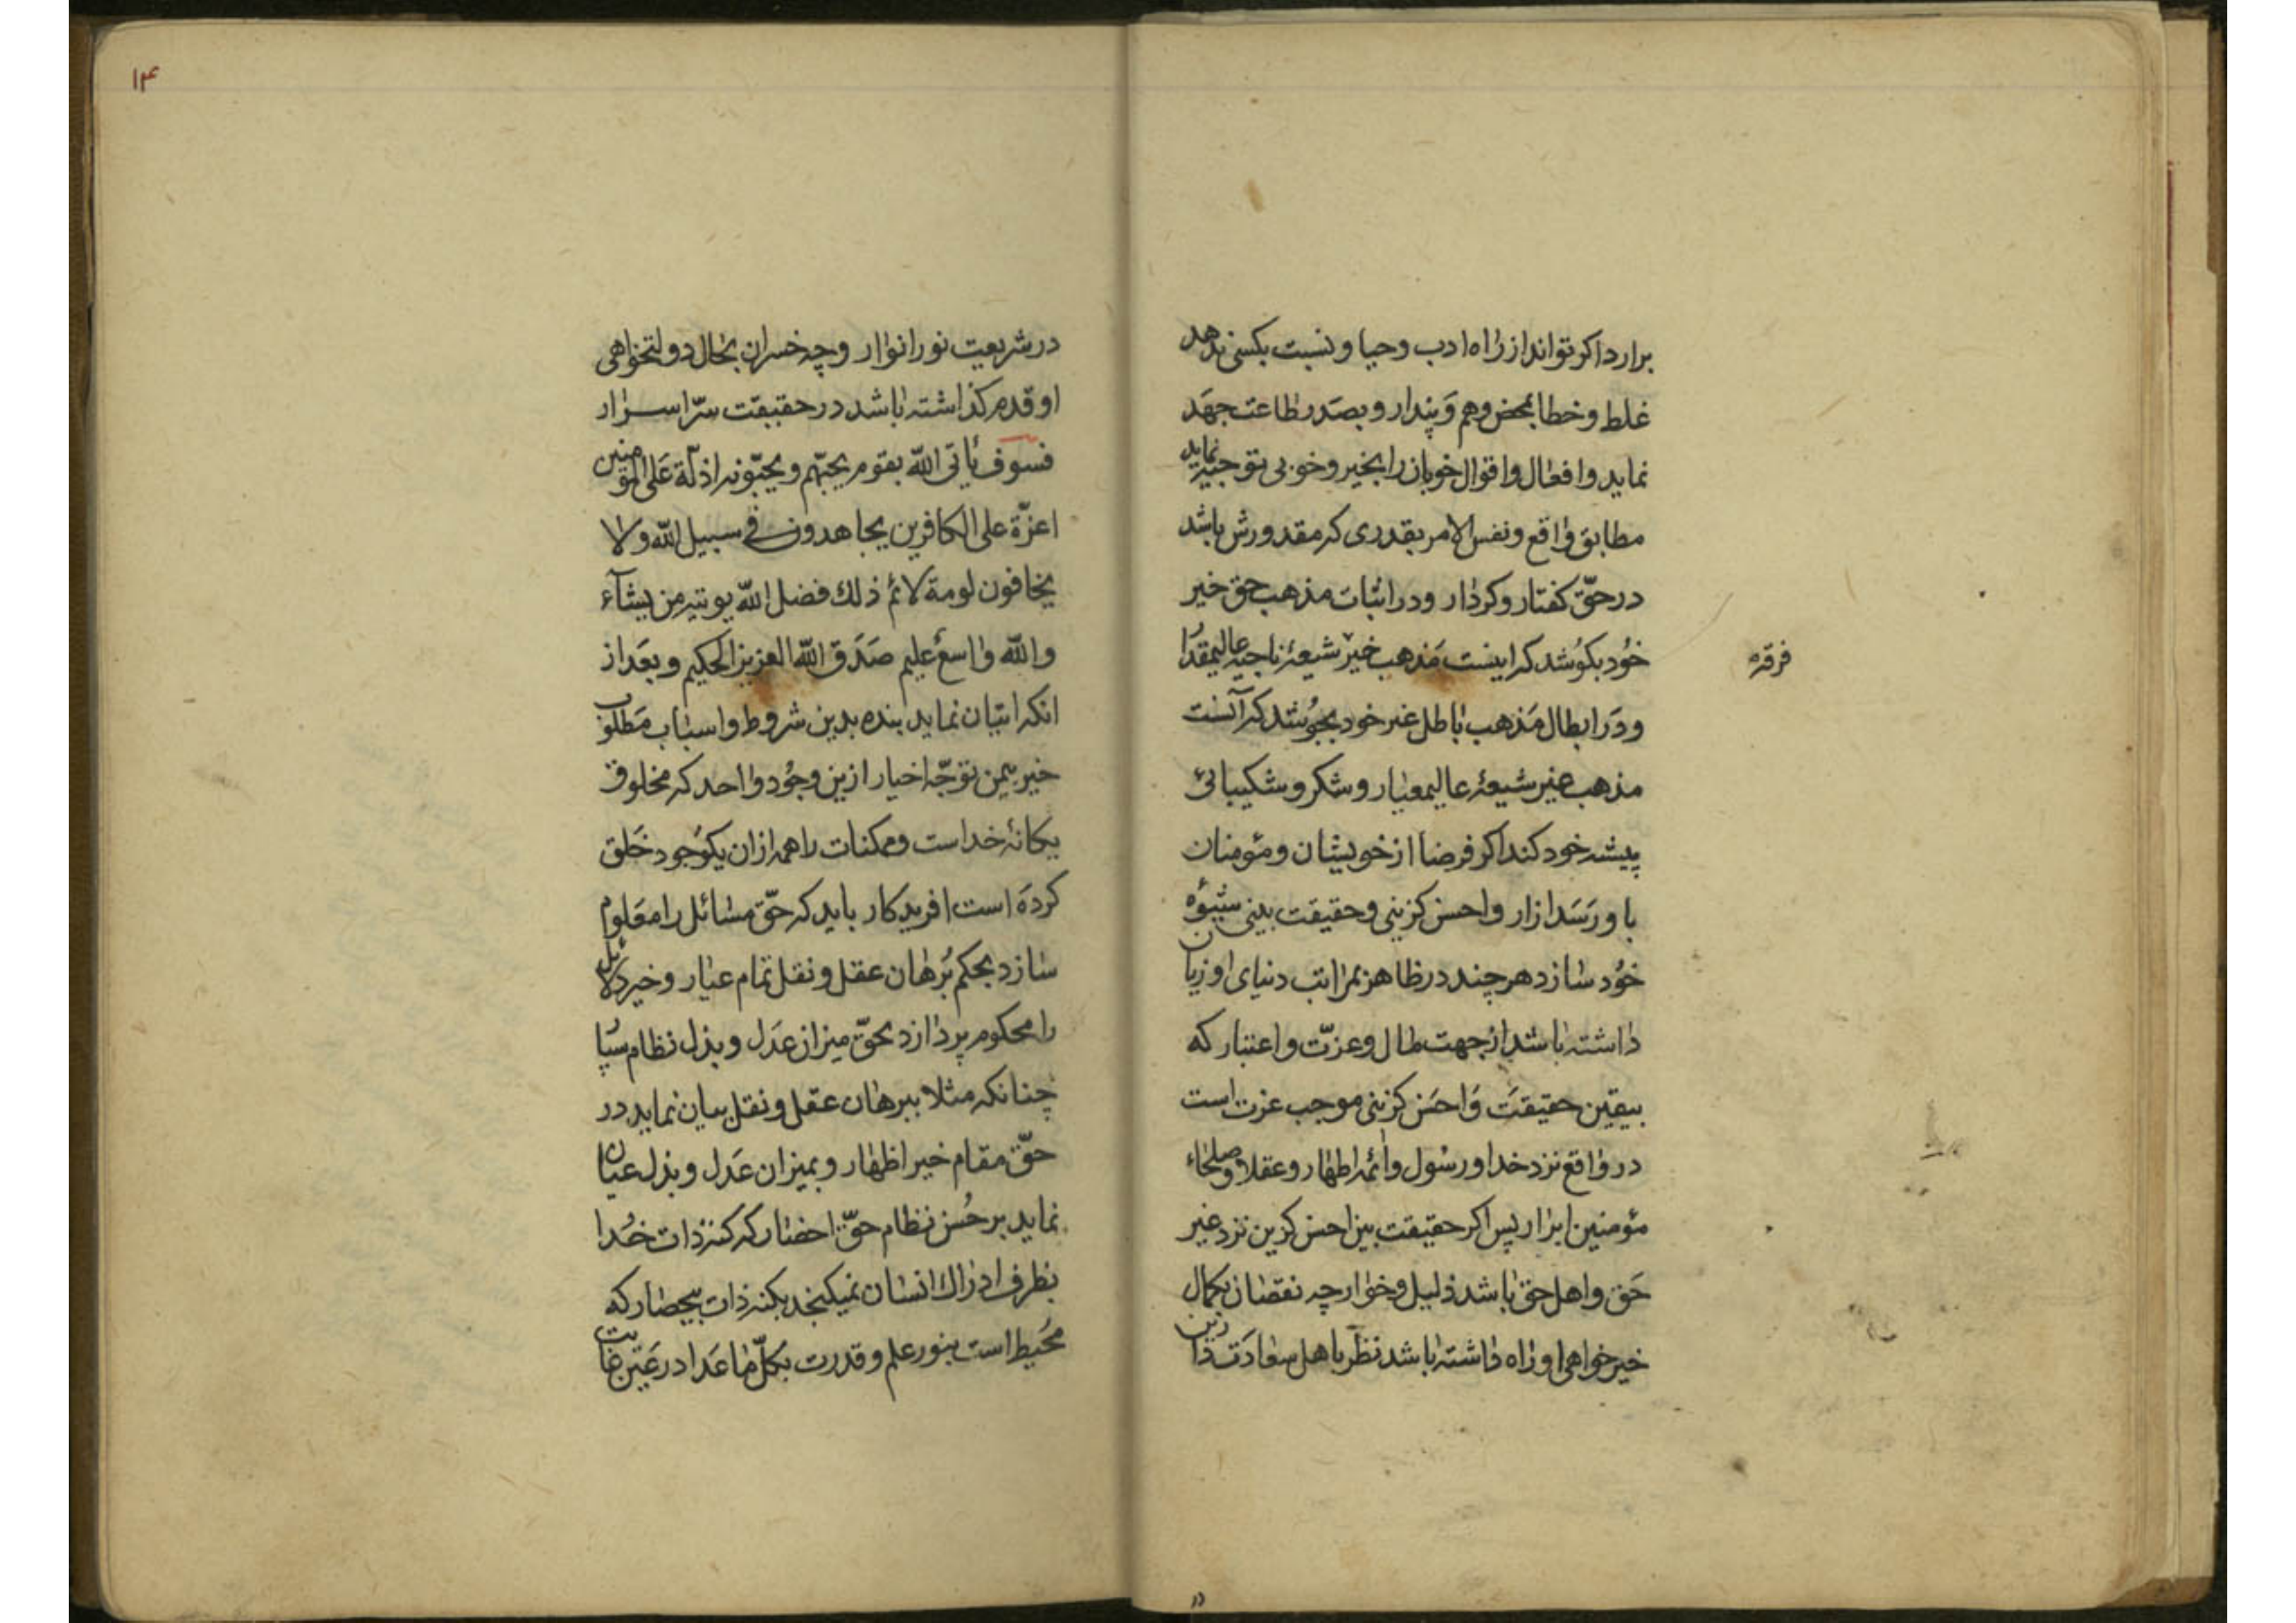 برارد اکر تواند از راه ادب وحیا ونسبت بکسی ندهد
غلط وخطا بمحض وهم وَپندار وبصدر طاعت جهَد
نماید وافعال واقوال خوبان را بخیر وخوبی توجیه نماید
مطابق واقع ونفس الامر بقدری که مقدورش باشد
در حقّ کفتار وکردار ودر اثبات مذهب حق خیر
خُود بکوُشد که اینست مَذهب خیر شیعۀ ناجیۀ عالیمقدا
فرقه
ودَر ابطال مَذهب باطل غیر خود بجوُشد که آنست
مذهب غیر شیعۀ عالیمعیار وشکر وشکیبائی
پیشه خود کند اکر فرضا از خویشان ومؤمنان
باو رَسَد ازار واحسن کزینی وحقیقت بینی شیوه
خوُد سازد هر چند در ظاهر بمراتب دنیای او زیان
داشته باشد از جهت مال وعزّت واعتبار که
بیقین حقیقَت وَاحسَن کزینی موجب عزت است
در واقع نزد خدا ورسُول وائمۀ اطهار وعقلا وصلحاء
مؤمنین ابرار پس اکر حقیقت بین احسن کزین نزد غیر
حَق واهل حق باشد ذلیل وخوار چه نقصان بکمال
خیر خواهی او راه داشته باشد نظر باهل سعادَت دارین
۱۴
در شریعت نور انوار وچه خسران بحال دولتخواهی
او قدم کذاشته باشد در حقیقت سرّ اسرار
فسوف یأتی الله بقوم یحبّهم ویحبّونه اذلّة عَلی المؤمنین
اعزّة علی الکافرین یجاهدون فی سبیل الله ولا
یخافون لومة لائم ذلك فضل الله یوتیه من یشآء
والله واسعٌ علیم صَدَق الله العزیز الحکیم وبعَد از
انکه اتیان نماید بنده بدین شروط واسباب مَطلوب
خیر بیمن توجّه اخیار ازین وجُود واحد که مخلوق
یکانۀ خداست وممکنات را همه ازان یکوُجود خَلق
کردَه است افریدکار باید که حقّ مسائل را معَلوم
سازد بحکم بُرهان عقل ونقل تمام عیار وخیر دلائل
را محکوم پردازد بحقّ میزان عَدل وبذل نظام سُپا
چنانکه مثلا ببرهان عقل ونقل بیان نماید در
حقّ مقام خیر اظهار وبمیزان عَدل وبذل عیان
نماید بر حُسن نظام حقّ احضار که کنه ذات خُدا
بظرف ادراك انسان نمیکنجد بکنه ذات بیحصار که
مُحیط است بنور علم وقدرت بکلّ ما عَدا در عَین غایت